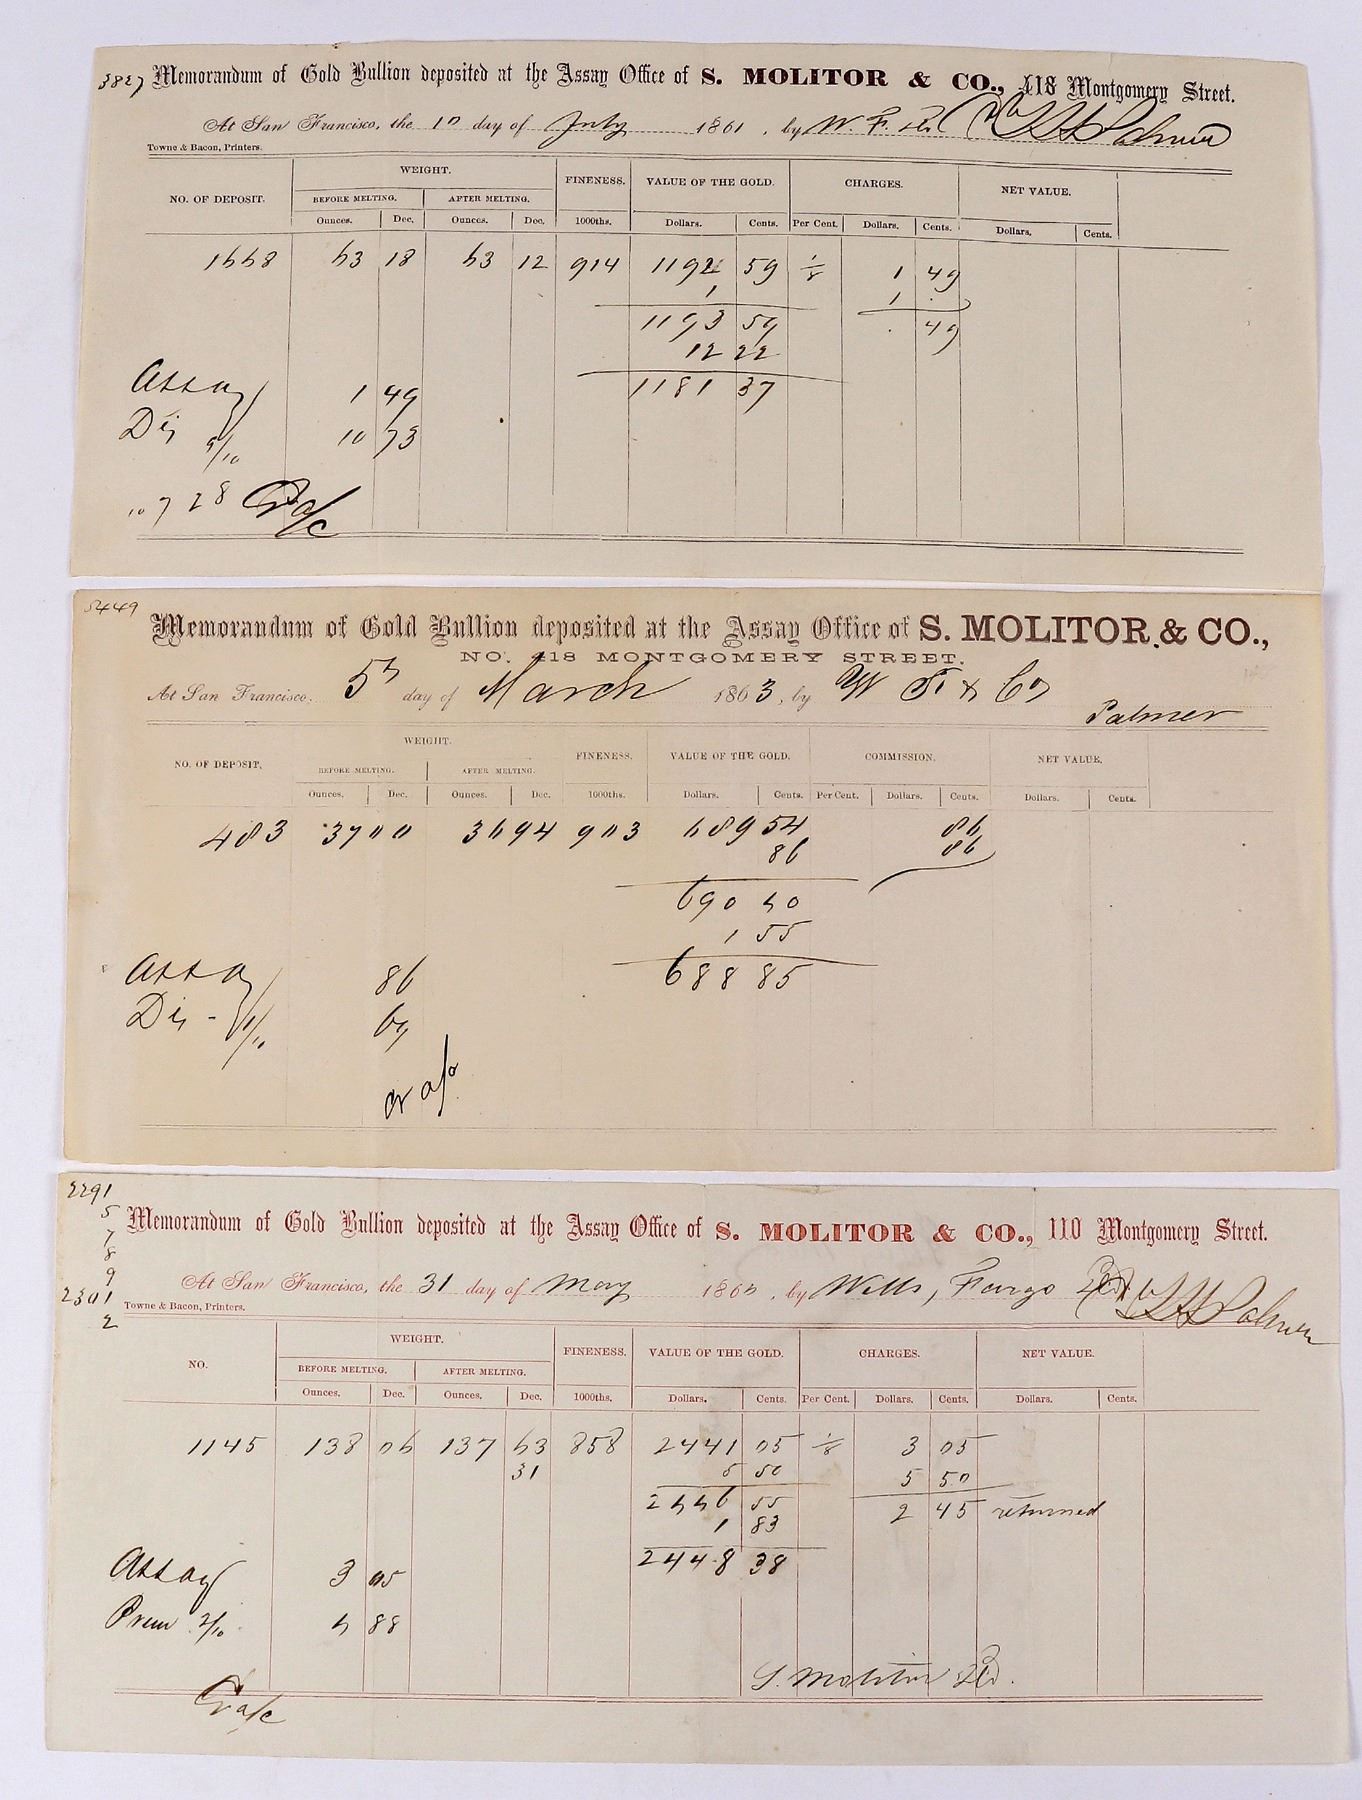 3827 Memorandum of Gold Bullion deposited at the Assay Office of S. MOLITOR & CO., 418 Montgomery Street.
At San Francisco, the 10 day of July 1861, by W. F. & Co Palmer
Towne & Bacon, Printers.
NO. OF DEPOSIT. WEIGHT. FINENESS. VALUE OF THE GOLD. CHARGES. NET VALUE.
BEFORE MELTING. AFTER MELTING.
Ounces. Dec. Ounces. Dec. 1000ths. Dollars. Cents. Per Cent. Dollars. Cents. Dollars. Cents.
1668 63 18 63 12 914 1192 59 1/8 1 49
1 1 .
1193 59 . 49
12 22
1181 37
Assay 1 49
Dis 9/10 10 73
10728 Cr a/c
5449
Memorandum of Gold Bullion deposited at the Assay Office of S. MOLITOR & CO.,
NO. 418 MONTGOMERY STREET.
At San Francisco, 5th day of March 1863, by W F & Co
Palmer
NO. OF DEPOSIT. WEIGHT. FINENESS. VALUE OF THE GOLD. COMMISSION. NET VALUE.
BEFORE MELTING. AFTER MELTING.
Ounces. Dec. Ounces. Dec. 1000ths. Dollars. Cents. Per Cent. Dollars. Cents. Dollars. Cents.
483 37 00 36 94 903 689 54 86
86 86
690 40
1 55
688 85
Assay 86
Dis - 1/10 69
Cr a/c
2291
5
7
8
9
2301
2
Memorandum of Gold Bullion deposited at the Assay Office of S. MOLITOR & CO., 110 Montgomery Street.
At San Francisco, the 31 day of May 1860, by Wells, Fargo & Co Palmer
Towne & Bacon, Printers.
NO. WEIGHT. FINENESS. VALUE OF THE GOLD. CHARGES. NET VALUE.
BEFORE MELTING. AFTER MELTING.
Ounces. Dec. Ounces. Dec. 1000ths. Dollars. Cents. Per Cent. Dollars. Cents. Dollars. Cents.
1145 138 06 137 63 858 2441 05 1/8 3 05
31 5 50 5 50
2446 55 2 45 returned
1 83
2448 38
Assay 3 05
Prem 2/10 4 88
S. Molitor & Co.
Cr a/c